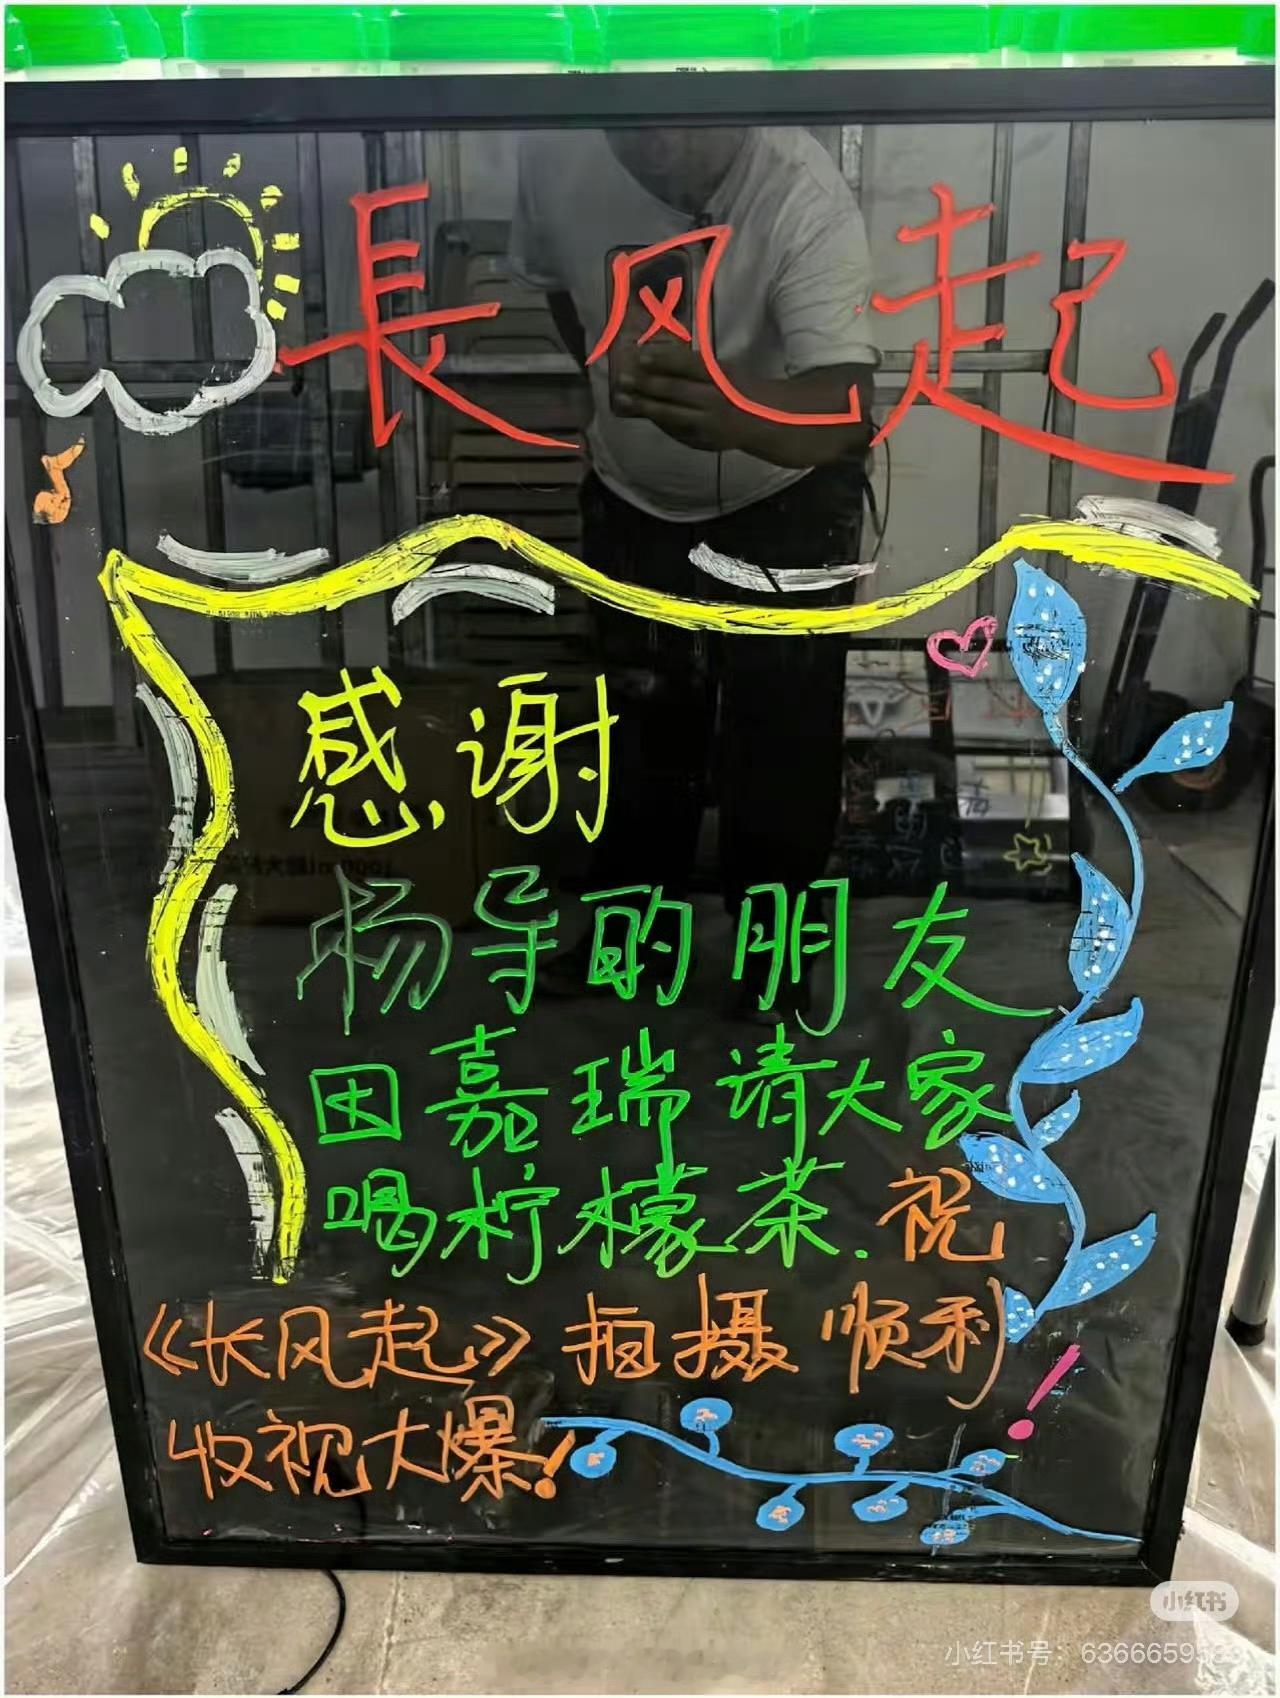 長风起
感谢
杨导的朋友
因嘉瑞请大家
喝柠檬茶.祝
《长风起》拍摄顺利
收视大爆!
!
小红书
小红书号：6366659583